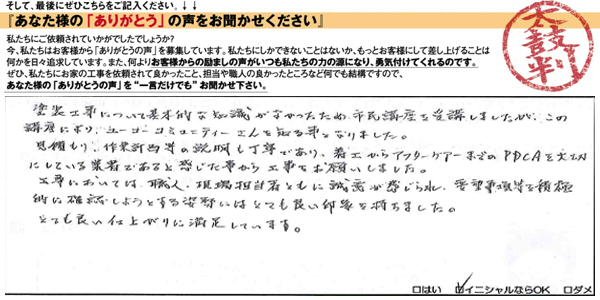 そして、最後にぜひこちらをご記入ください。↓↓
『あなた様の「ありがとう」の声をお聞かせください』
太鼓判
私たちにご依頼されていかがでしたでしょうか?
今、私たちはお客様から「ありがとうの声」を募集しています。私たちにしかできないことはないか、もっとお客様にして差し上げることは
何かを日々追求しています。また、何よりお客様からの励ましの声がいつも私たちの力の源になり、勇気付けてくれるのです。
ぜひ、私たちにお家の工事を依頼されて良かったこと、担当や職人の良かったところなど何でも結構ですので、
あなた様の「ありがとうの声」を“一言だけでも”お聞かせ下さい。
塗装工事について基本的な知識がなかったため、市民講座を受講しましたが、この
講座により、ユーコーコミュニティーさんを知る事となりました。
見積もり、作業計画等の説明も丁寧であり、着工からアフターケアーまでのPDCAを大切
にしている業者であると感じた事から工事をお願いしました。
工事においては、職人、現場担当者ともに誠意が感じられ、要望事項等を積極
的に確認しようとする姿勢にはとても良い印象を持ちました。
とても良い仕上がりに満足しています。
□はい ☑イニシャルならOK □ダメ